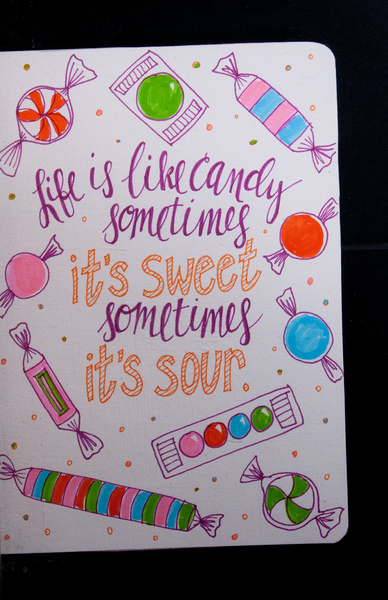 Life is like candy
sometimes
it's sweet
sometimes
it's sour.